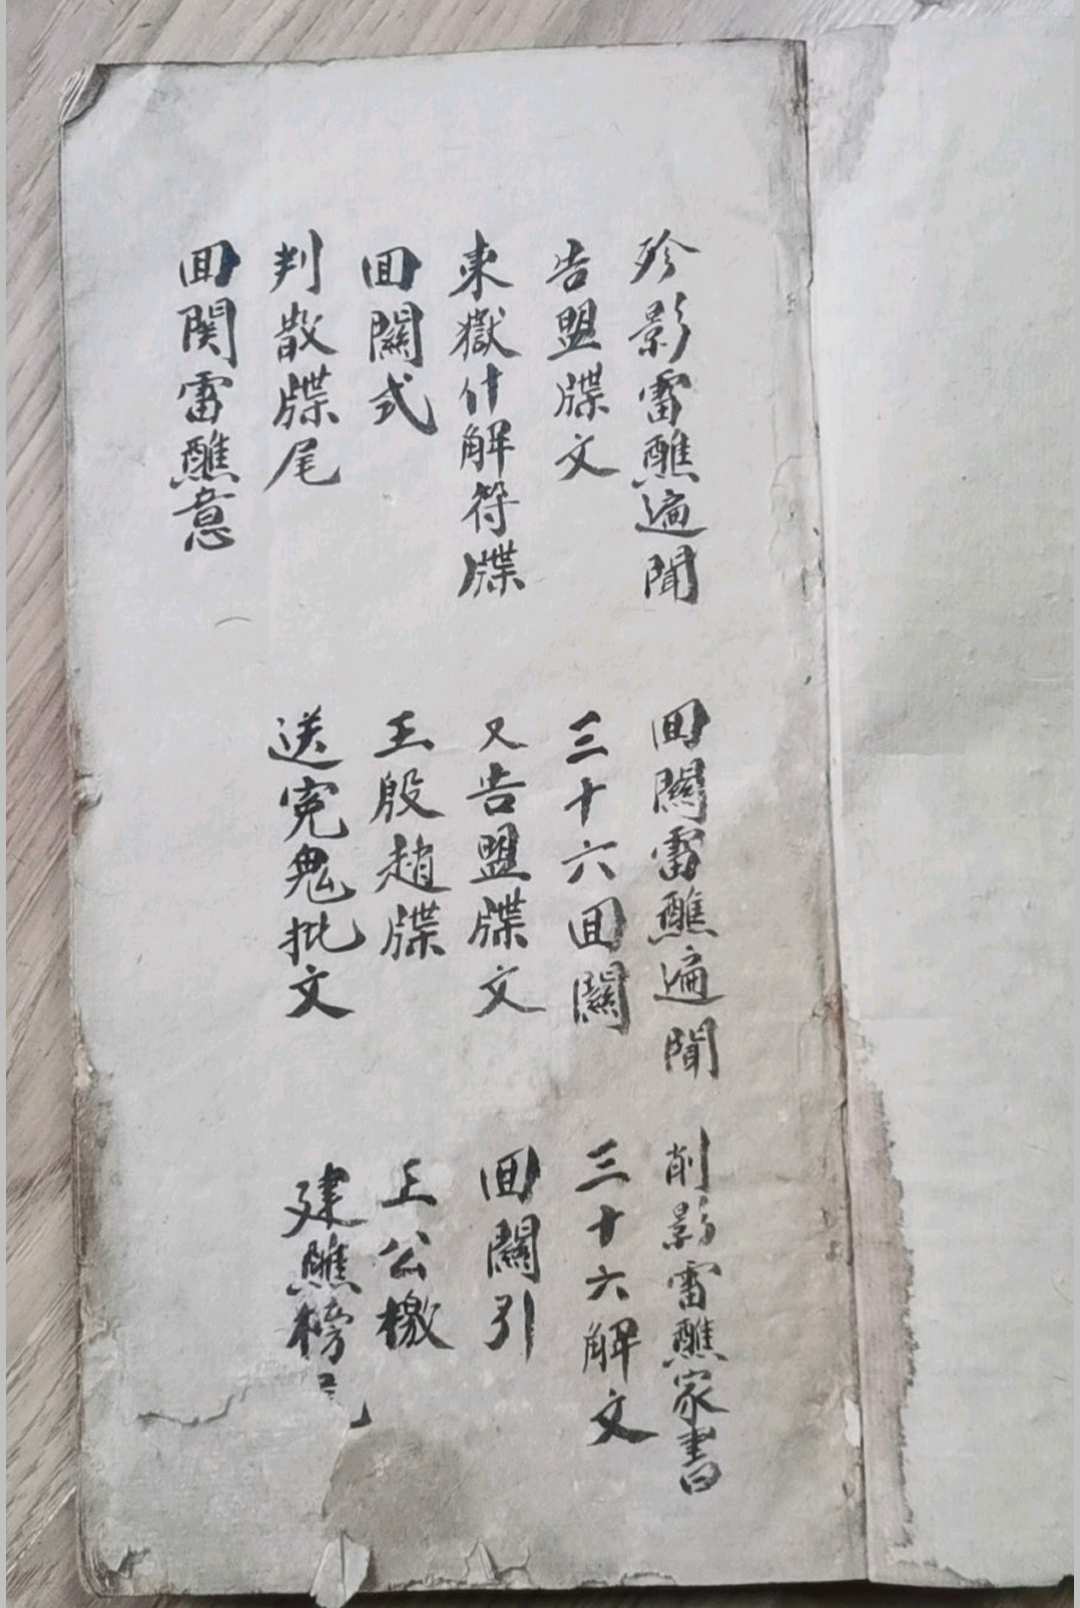 殄影雷醮遍聞
回關雷醮遍聞
削影雷醮家書
告盟牒文
三十六回關
三十六解文
東嶽什解符牒
又告盟牒文
回關引
回關式
王殷趙牒
王公檄
判散牒尾
送冤鬼批文
建醮榜
回関雷醮意